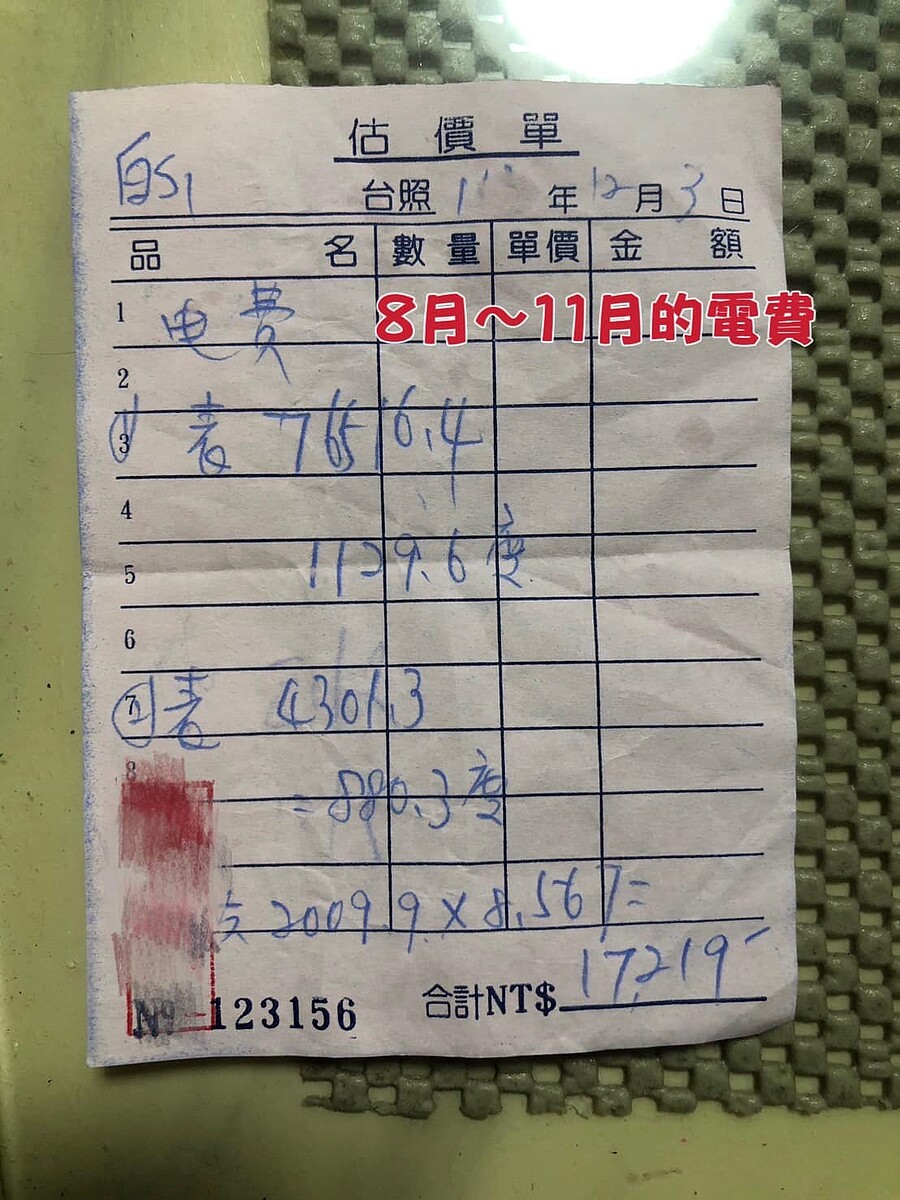 估價單
台照 111年12月3日
品名 數量 單價 金額
1 电費
8月～11月的電費
2
3 ① 表 76516.4
4
5 1129.6度
6
7 ② 表 4301.3
8
=880.3度
2009.9×8.567=
合計NT$ 17,219-
№ 123156